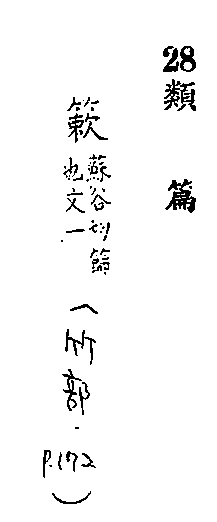 28
類篇
簌
蘇谷切篩
也文一
(竹部.
P.172)